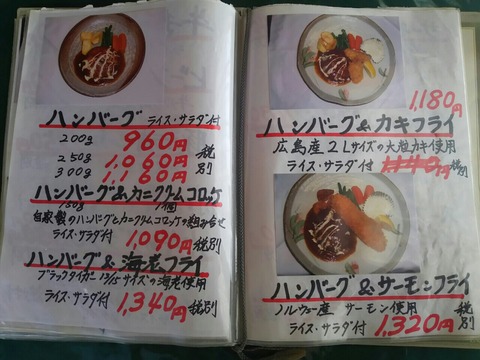 ハンバーグ ライス・サラダ付
200g 960円
250g 1,060円 税別
300g 1,160円
ハンバーグ&カニクリームコロッケ
150g 1個
自家製のハンバーグとカニクリームコロッケの組み合せ
ライス・サラダ付 1,090円 税別
ハンバーグ&海老フライ
ブラックタイガー 13/15サイズの海老使用
ライス・サラダ付 1,340円 税別
1,180円
ハンバーグ&カキフライ
広島産2Lサイズの大粒カキ使用
ライス・サラダ付 1,140円 税別
ハンバーグ&サーモンフライ
ノルウェー産 サーモン使用
ライス・サラダ付 1,320円 税別